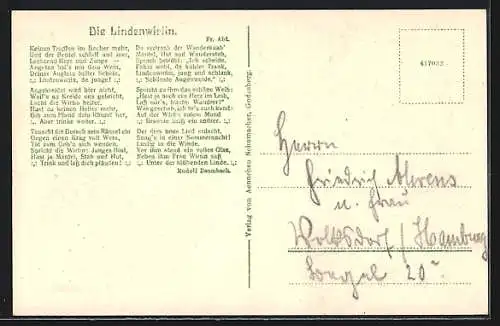 Die Lindenwirtin.
Fr. Abt.
Keinen Tropfen im Becher mehr,
Und der Beutel schlaff und leer,
Lechzend Herz und Zunge —
Angetan hat's mir dein Wein,
Deiner Äuglein heller Schein,
Lindenwirtin, du junge!
Angekreidet wird hier nicht,
Weil's an Kreide uns gebricht,
Lacht die Wirtin heiter.
Hast du keinen Heller mehr,
Gib zum Pfand dein Ränzel her,
Aber trinke weiter.
Tauscht der Bursch sein Ränzel ein
Gegen einen Krug voll Wein,
Tät zum Geh'n sich wenden,
Spricht die Wirtin: Junges Blut,
Hast ja Mantel, Stab und Hut,
Trink und laß dich pfänden!
Da vertrank der Wanderknab'
Mantel, Hut und Wanderstab,
Sprach betrübt: „Ich scheide.
Fahre wohl, du kühler Trank,
Lindenwirtin, jung und schlank,
Schönste Augenweide.“
Spricht zu ihm das schöne Weib:
„Hast ja noch ein Herz im Leib,
Laß mir's, trauter Wandrer!“
Was geschah, ich tu's euch kund:
Auf der Wirtin rotem Mund
Brannte heiß ein andrer.
Der dies neue Lied erdacht,
Sang's in einer Sommernacht
Lustig in die Winde.
Vor ihm stand ein volles Glas,
Neben ihm Frau Wirtin saß
Unter der blühenden Linde.
Rudolf Baumbach.
Verlag von Aennchen Schumacher, Godesberg.
417032
Herrn
Friedrich Ahrens
u. Frau
Volksdorf / Hamburg
20